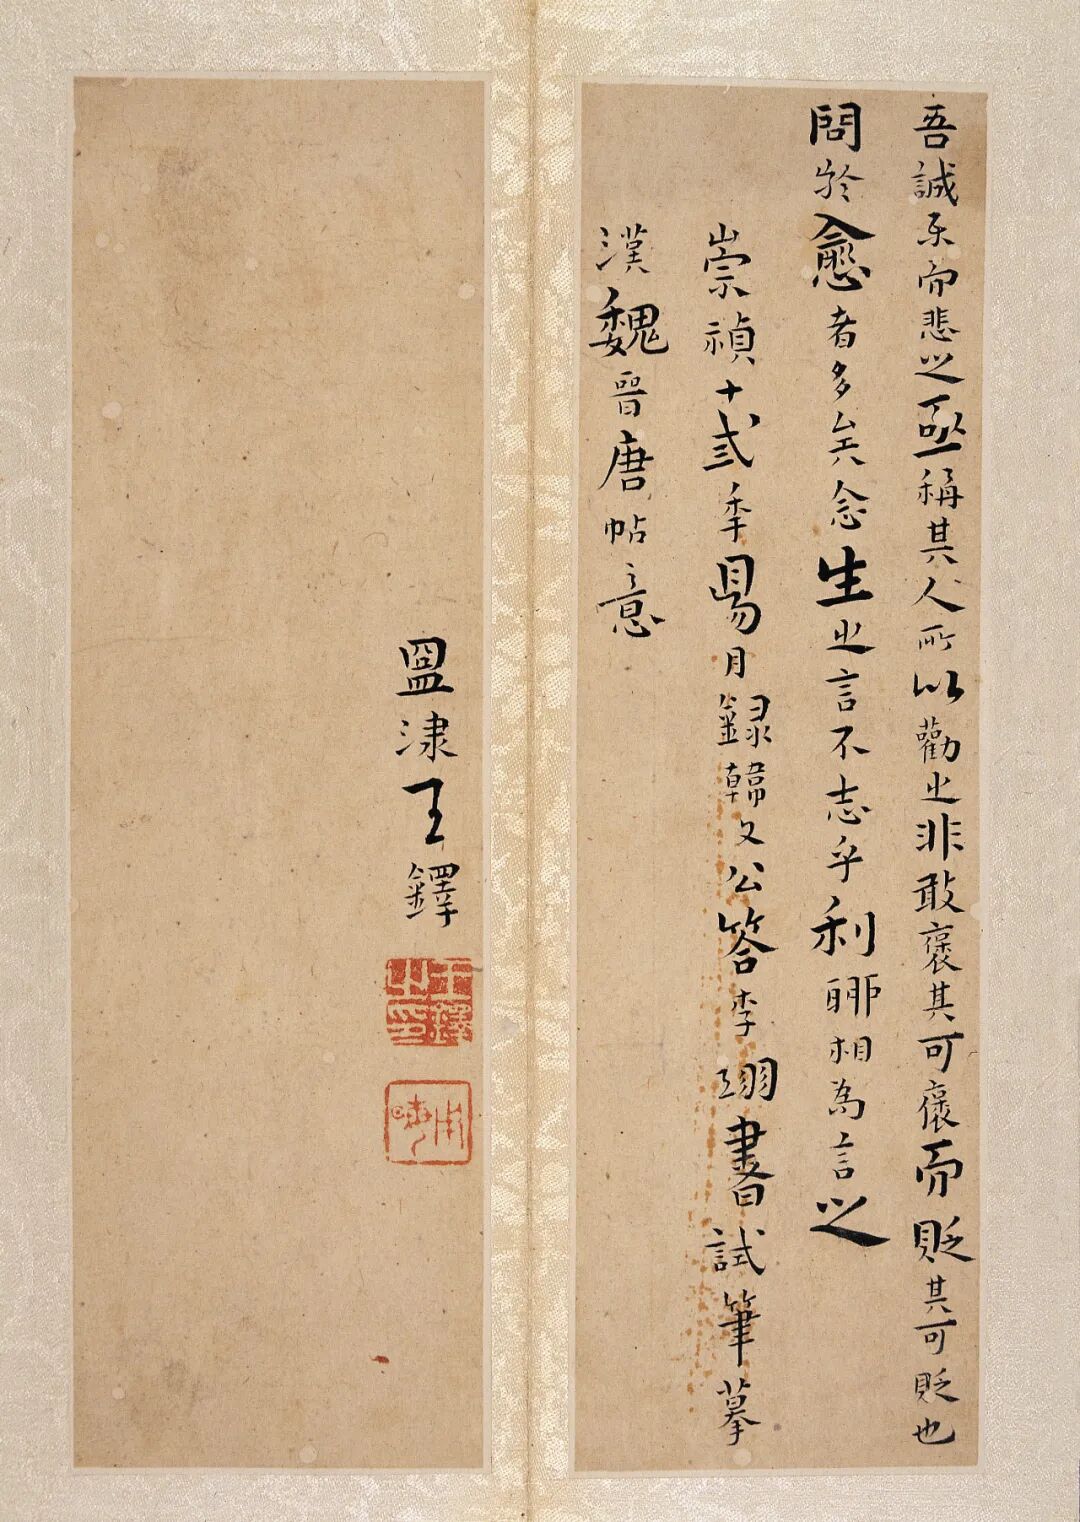 吾誠乐而悲之亟稱其人所以勸之非敢褒其可褒而貶其可貶也
問於愈者多矣念生之言不志乎利聊相為言之
崇禎十弍秊昜月録韓文公答李翊書試筆摹
漢魏晉唐帖意
盟津王鐸
王鐸之印